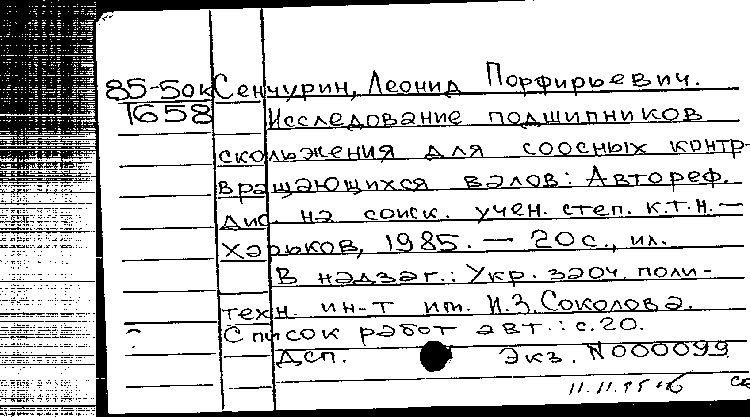 85-5ок Сенчурин, Леонид Порфирьевич.
1658 Исследование подшипников
скольжения для соосных контр-
вращающихся валов: Автореф.
дис. на соиск. учен. степ. к.т.н.—
Харьков, 1985. — 20с., ил.
В надзаг.: Укр. заоч. поли-
техн. ин-т им. И.З. Соколова.
Список работ авт.: с.20.
Дсп. Экз. N000099